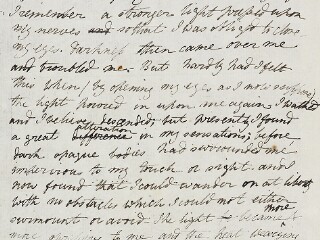 I remember a stronger light pressed upon
my nerves and so that I was obliged to close
my eyes. Darkness then came over me
and troubled me. But hardly had I felt
this when, by opening my eyes as I now suppose
the light poured in upon me again. I walked
and I believe descended; but presently I found
alteration
a great difference in my sensations; before
dark opaque bodies had surrounded me
impervious to my touch or sight and I
now found that I could wander on at liberty
with no obstacles which I could not either
surmount or avoid. The light became more
more oppressive to me and the heat wearying